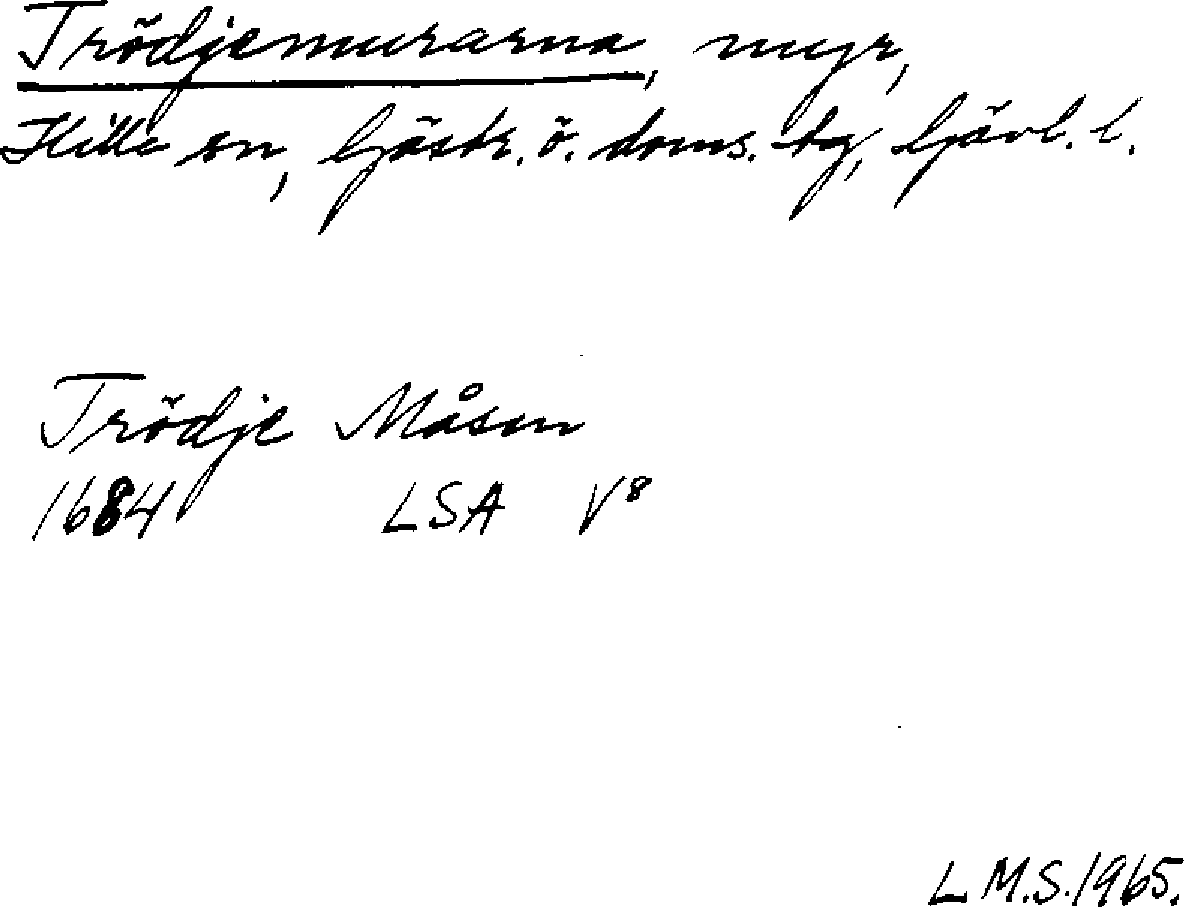 Trödjemurarna, myr,
Hille sn, Gästr. ö. doms. tg, Gävl. l.
Trödje Måsen
1684 LSA V8
L M.S. 1965.